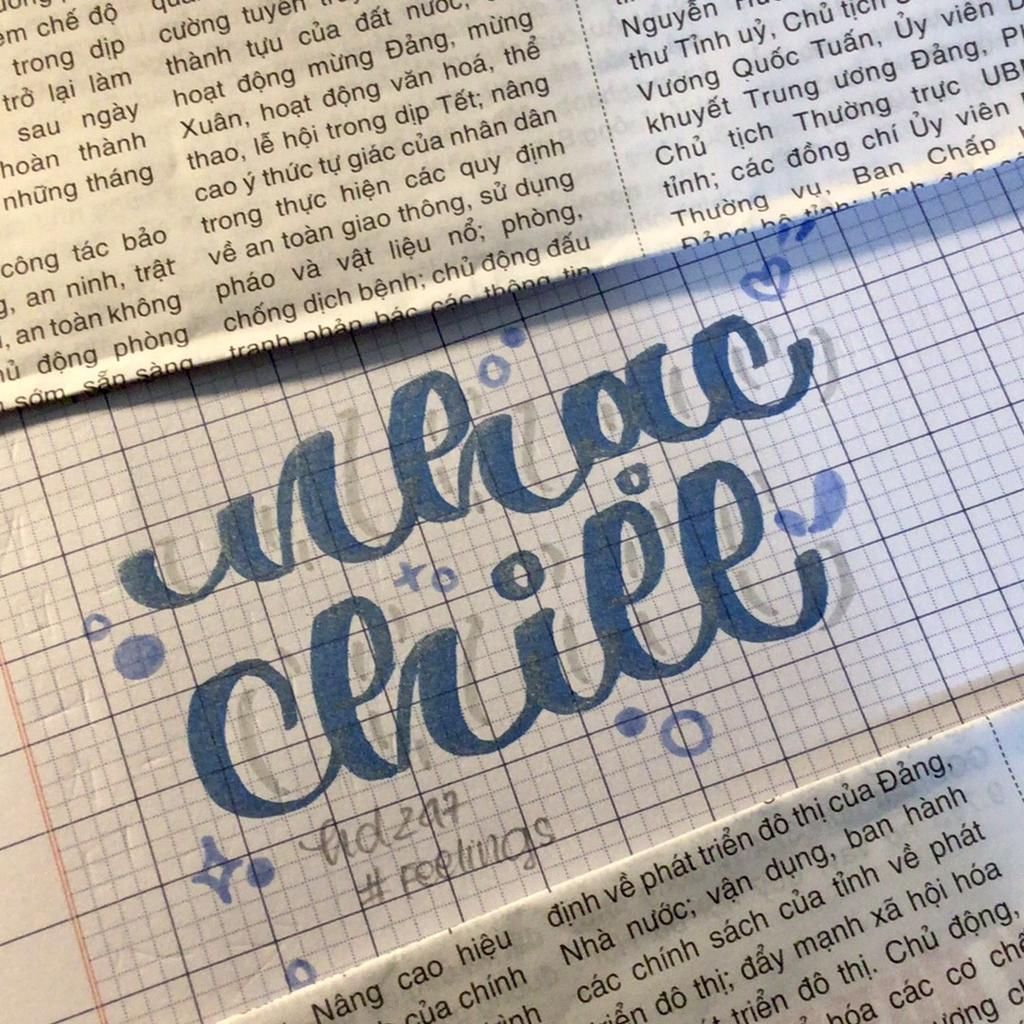 em chế độ
trong dịp
trở lại làm
sau ngày
hoàn thành
những tháng
công tác bảo
an ninh, trật
an toàn không
động phòng
sớm, sẵn sàng
cường tuyên
thành tựu của đất nước,
hoạt động mừng Đảng, mừng
Xuân, hoạt động văn hoá, thể
thao, lễ hội trong dịp Tết; nâng
cao ý thức tự giác của nhân dân
trong thực hiện các quy định
về an toàn giao thông, sử dụng
pháo và vật liệu nổ; phòng,
chống dịch bệnh; chủ động đấu
tranh phản bác các thông tin
Nguyễn
thư Tỉnh uỷ, Chủ tịch
Vương Quốc Tuấn, Ủy viên
khuyết Trung ương Đảng,
Chủ tịch Thường trực
tỉnh; các đồng chí Ủy viên
Thường vụ, Ban Chấp
Đảng bộ tỉnh; lãnh đạo
nhạc
chill
hdz47
#Feelings
Nâng cao hiệu
của chính
định về phát triển đô thị của Đảng,
Nhà nước; vận dụng, ban hành
các chính sách của tỉnh về phát
triển đô thị; đẩy mạnh xã hội hóa
triển đô thị. Chủ động,
hóa các cơ chế